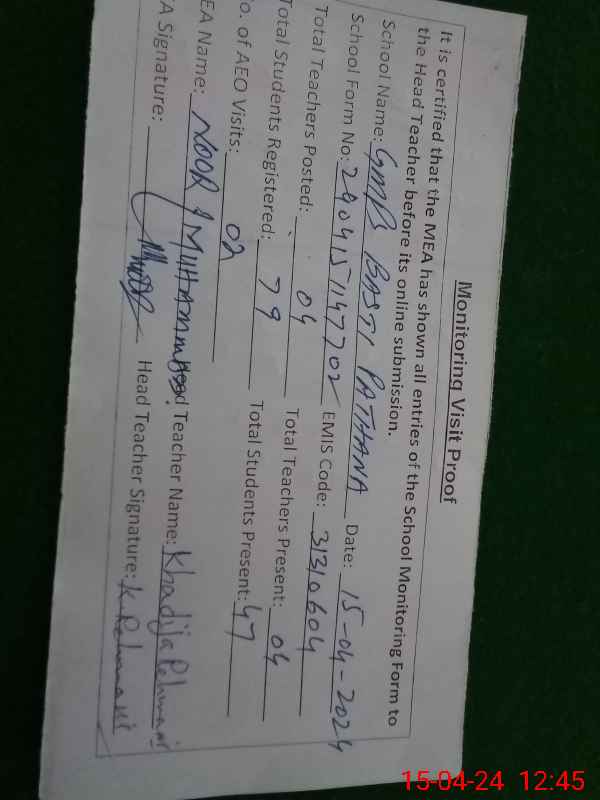 Monitoring Visit Proof
It is certified that the MEA has shown all entries of the School Monitoring Form to
the Head Teacher before its online submission.
School Name: GMPS BASTI PATHANA Date: 15-04-2024
School Form No: 2904151147702 EMIS Code: 31310604
Total Teachers Posted: 04 Total Teachers Present: 04
Total Students Registered: 79 Total Students Present: 47
o. of AEO Visits: 02
EA Name: NOOR MUHAMMAD Head Teacher Name: Khadija Rehmani
A Signature: Head Teacher Signature: K. Rehmani
15-04-24 12:45